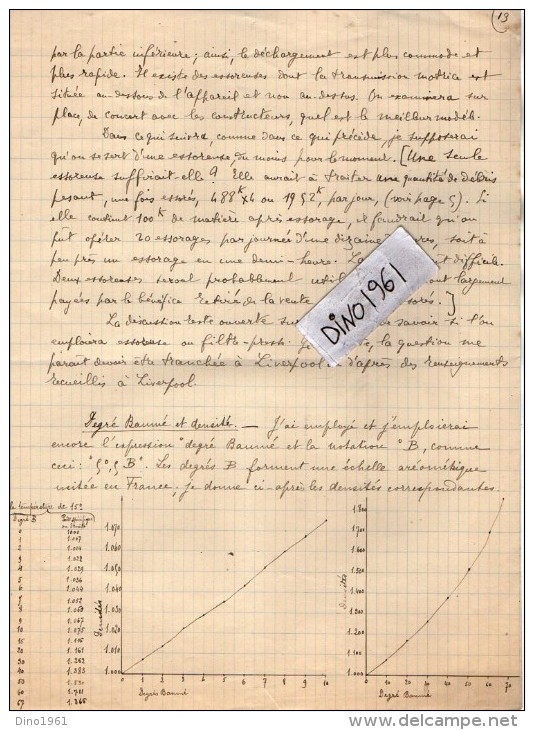 13
par la partie inférieure; ainsi, le déchargement est plus commode et
plus rapide. Il existe des essoreuses dont la transmission motrice est
située au-dessous de l'appareil et non au-dessus. On examinera sur
place, de concert avec les constructeurs, quel est le meilleur modèle.
Dans ce qui suivra, comme dans ce qui précède, je supposerai
qu'on se sert d'une essoreuse du moins pour le moment. [Une seule
essoreuse suffirait-elle? Elle aurait à traiter une quantité de débris
pesant, une fois essorés, 488k x 4 ou 1952k, par jour, (voir page 5). Si
elle contient 100k de matière après essorage, il faudrait qu'on
fît opérer 20 essorages par journée d'une dizaine
à peu près un essorage en une demi-heure. difficile.
Deux essoreuses seront probablement largement
payées par le bénéfice retiré de la vente ]
La discussion reste ouverte savoir si l'on
emploiera essoreuse ou filtre-presse. la question me
paraît devoir être tranchée à Liverpool d'après des renseignements
recueillis à Liverpool.
DINO1961
Degré Baumé et densité. — J'ai employé et j'emploierai
encore l'expression "degré Baumé et la notation °B, comme
ceci: "5°,5 B". Les degrés B forment une échelle aréométrique
usitée en France; je donne ci-après les densités correspondantes.
la température de 15°
Degré B
0 1000
1 1.007
2 1.014
3 1.022
4 1.029
5 1.036
6 1.044
7 1.052
8 1.060
9 1.067
10 1.075
15 1.116
20 1.161
30 1.262
40 1.383
50 1.530
60 1.711
Densités
1.070
1.060
1.050
1.040
1.030
1.020
1.010
1.000
0 1 2 3 4 5 6 7 8 9 10
Degré Baumé
Densités
1.800
1.700
1.600
1.500
1.400
1.300
1.200
1.100
1.000
0 10 20 30 40 50 60 70
Degré Baumé
Dino1961
www.delcampe.net